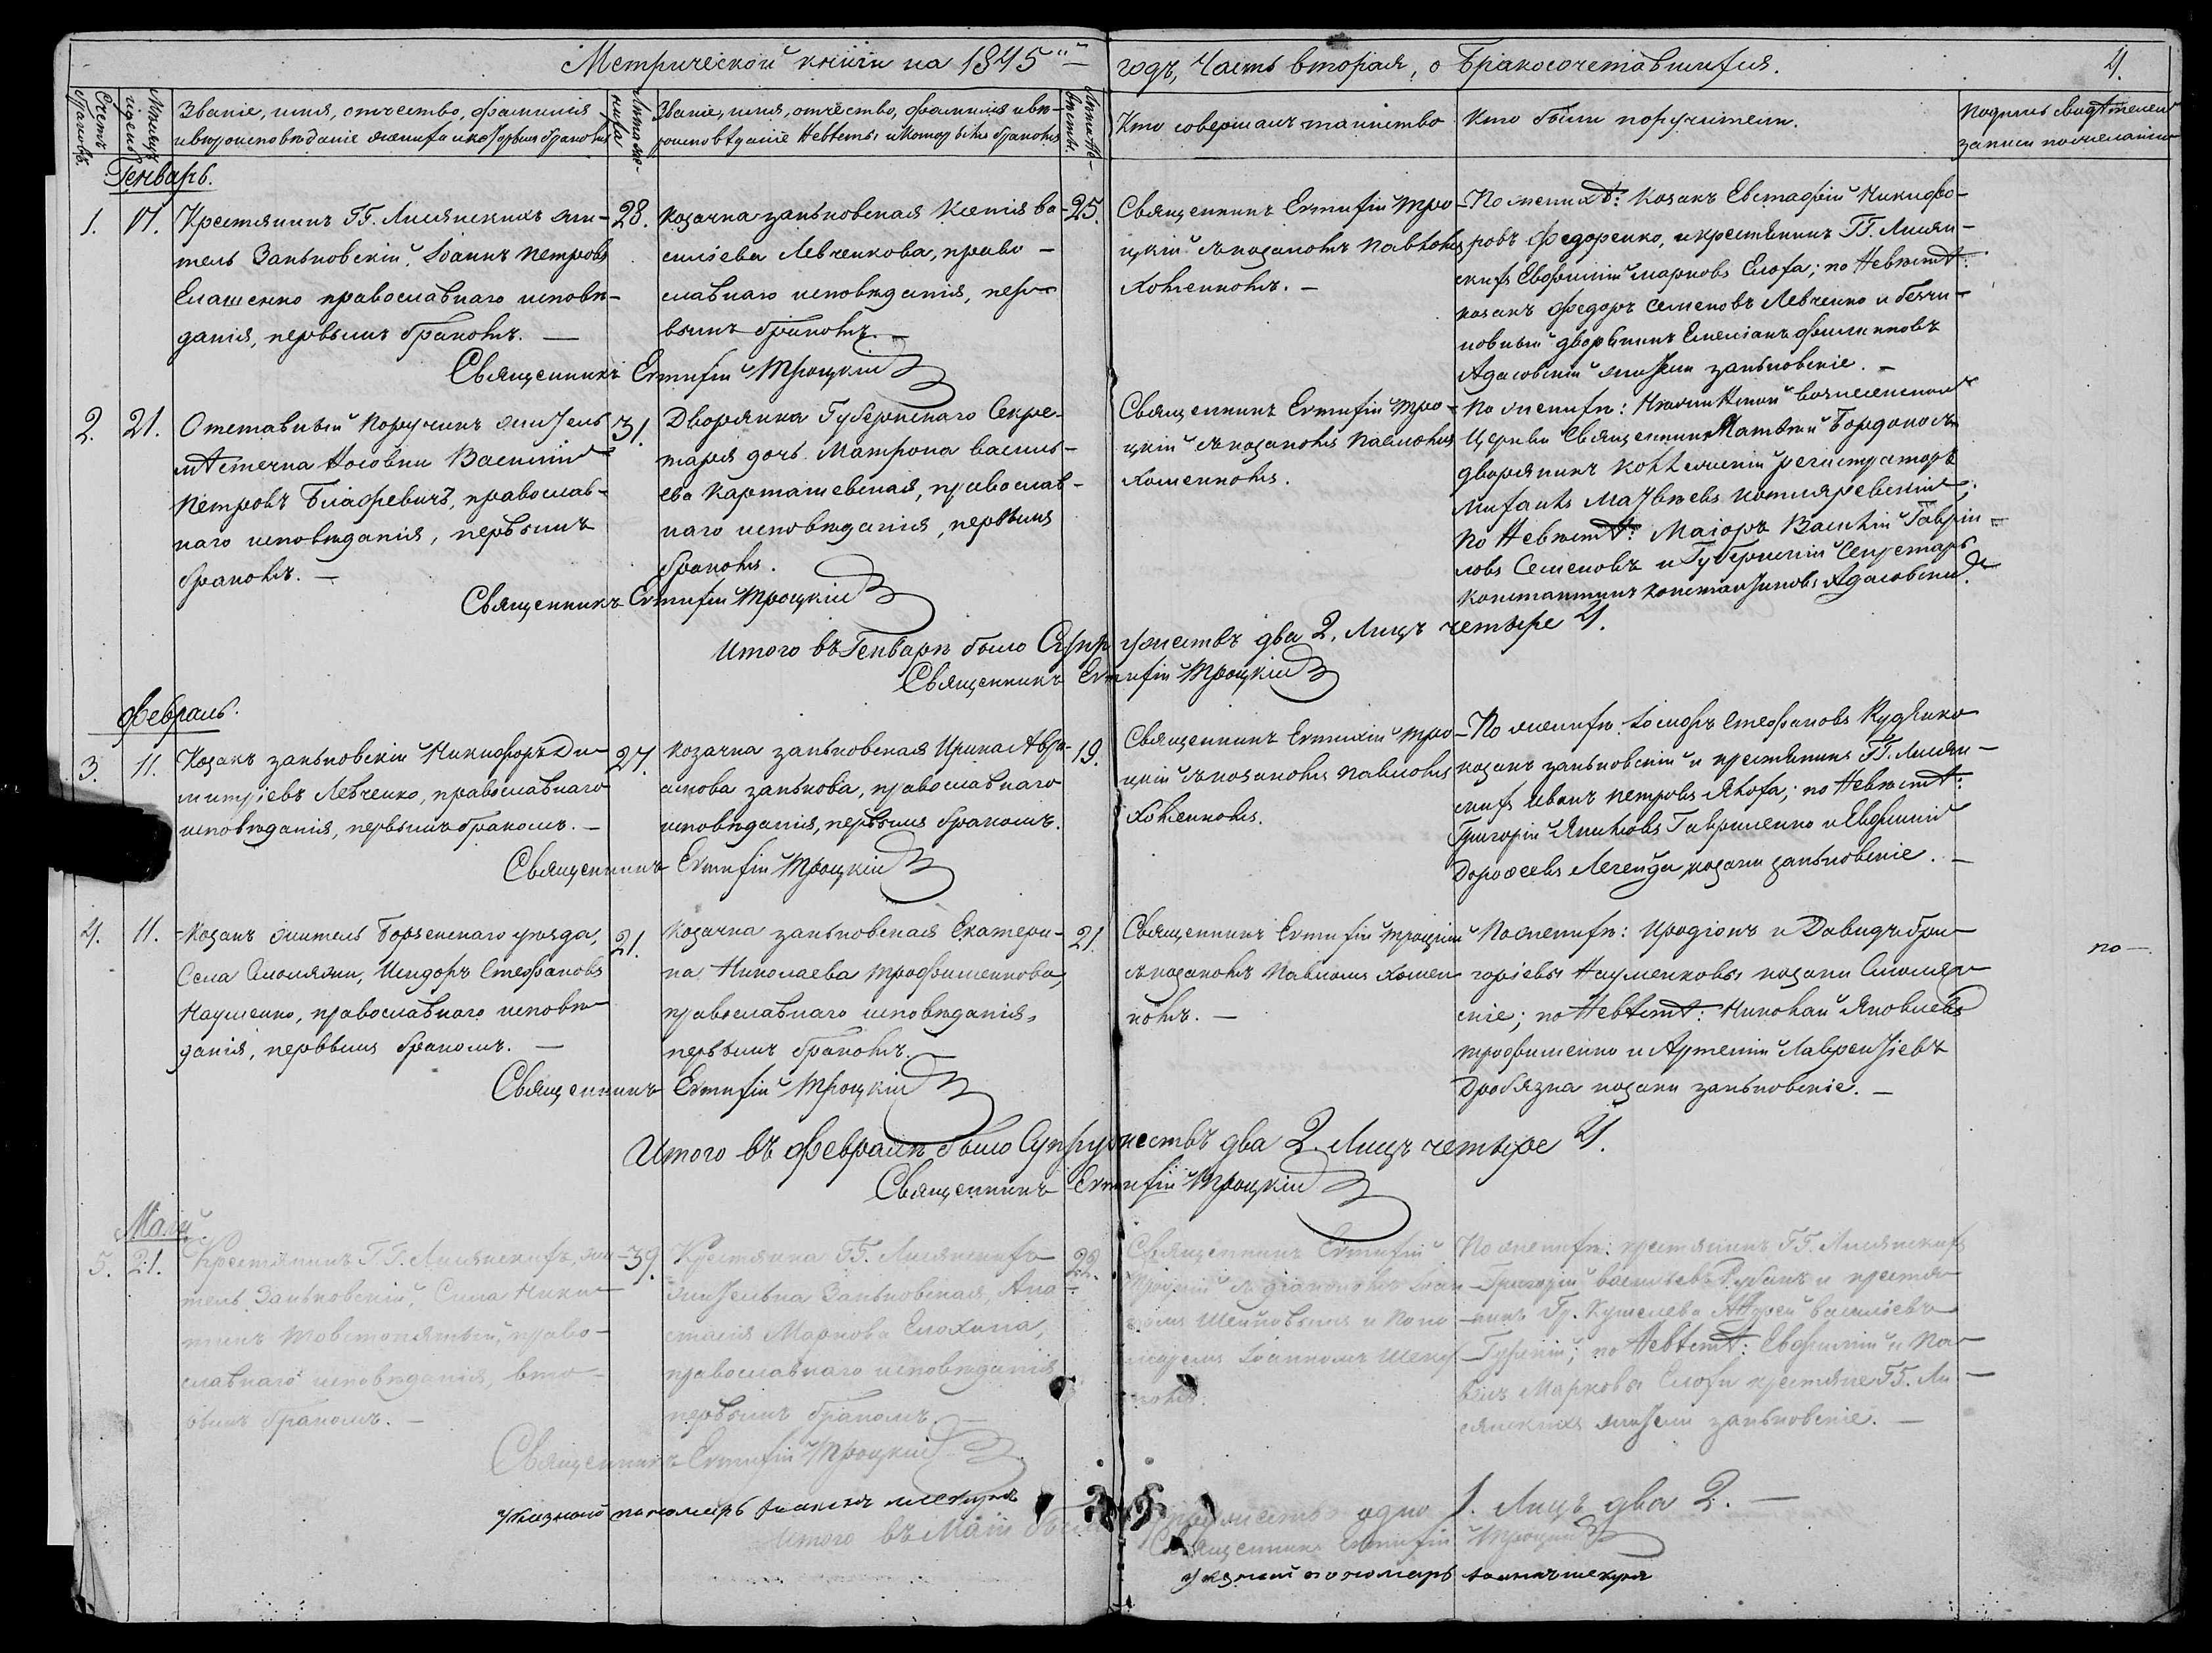 Метрической книги на 1845й годъ, Часть вторая, о Бракосочетавшихся.
4.
Счетъ браковъ.
Мѣсяцъ и день
Званіе, имя, отчество, фамилія
и вѣроисповѣданіе жениха и которымъ бракомъ
Лѣта жениха
Званіе, имя, отчество, фамилія и вѣ-
роисповѣданіе Невѣсты и которымъ бракомъ
Лѣта Невѣсты.
Кто совершалъ таинство
Кто были поручители.
Подпись свидѣтелей
записи по желанію
Генварь.
1.
17.
Крестянинъ ГГ. Лисянскихъ жи-
тель Заньковскій, Іоаннъ Петровъ
Елашенко православнаго исповѣ-
данія, первымъ бракомъ. —
28.
Козачка заньковская Ксенія Ва-
силіева Левченкова, право-
славнаго исповѣданія, пер-
вымъ бракомъ. —
25.
Священникъ Евтифій Тро-
цкій съ козакомъ Павломъ
Хоменкомъ. —
По женихѣ: Козакъ Евстафій Никифо-
ровъ Федоренко, и крестянинъ ГГ. Лисян-
скихъ Евфимій Марковъ Елоха; по Невѣстѣ:
козакъ Федоръ Семеновъ Левченко и безчи-
новный дворянинъ Емеліанъ Филиповъ
Адасовскій жители заньковскіе. —
Священникъ Евтифій Троцкій
2.
21.
Отставный Поручикъ житель
мѣстечка Носовки Василій
Петровъ Білафевичъ, православ-
наго исповѣданія, первымъ
бракомъ. —
31.
Дворянка Губернскаго Секре-
таря дочь Матрона Василь-
ева Карташевская, православ-
наго исповѣданія, первымъ
бракомъ.
Священникъ Евтифій Тро-
цкій съ козакомъ Павломъ
Хоменкомъ.
По женихѣ: вознесенской
Церкви Священникъ Матвѣй Бордоносъ
дворянинъ Коллежскій регистраторъ
Матвѣевъ Котляревскій;
по Невѣстѣ: Маіоръ Василій Гаври-
ловъ Семеновъ и Губернскій Секретарь
Константинъ Константиновъ Адасовскій.
Священникъ Евтифій Троцкій
Итого въ Генварѣ было Супружествъ два 2. Лицъ четыре 4.
Священникъ Евтифій Троцкій
Февраль.
3.
11.
Козакъ заньковскій Никифоръ Ди-
митріевъ Левченко, православнаго
исповѣданія, первымъ бракомъ. —
27.
козачка заньковская Ирина Авра-
амова занькова, православнаго
исповѣданія, первымъ бракомъ.
19.
Священникъ Евтихій Тро-
цкій съ козакомъ Павломъ
Хоменкомъ.
По женихѣ Стефановъ Рудько
козакъ заньковскій и крестянинъ ГГ. Лисян-
скихъ Иванъ Петровъ Елоха; по Невѣстѣ:
Григорій Яковлевъ Гавриленко и Евфимій
Дорофеевъ Легейда козаки заньковскіе. —
Священникъ Евтифій Троцкій
4.
11.
Козакъ житель Борзенскаго уѣзда,
Села Смоляжи, Исидоръ Стефановъ
Науменко, православнаго исповѣ-
данія, первымъ бракомъ. —
21.
Козачка заньковская Екатери-
на Николаева Трофименкова,
православнаго исповѣданія,
первымъ бракомъ. —
21.
Священникъ Евтифій Троцкій
съ козакомъ Павломъ Хомен-
комъ. —
По женихѣ: Иродіонъ и Давидъ Гри-
горіевы Науменковы козаки Смоляж-
скіе; по Невѣстѣ: Николай Яковлевъ
Трофименко и Артемій Лаврентіевъ
Дробязка козаки заньковскіе. —
по —
Священникъ Евтифій Троцкій
Итого въ Февралѣ было Супружествъ два 2. Лицъ четыре 4.
Священникъ Евтифій Троцкій
Маій
5.
21.
Крестянинъ ГГ. Лисянскихъ, жи-
тель Заньковскій, Сила Ники-
тинъ Товстопятый, право-
славнаго исповѣданія, вто-
рымъ бракомъ. —
39.
Крестянка ГГ. Лисянскихъ
жителька Заньковская, Ана-
стасія Маркова Елохина,
православнаго исповѣданія
первымъ бракомъ. —
22.
Священникъ Евтифій
Троцкій съ діакономъ Іоан-
номъ и Поно-
маремъ Іоанномъ Шеку-
номъ.
По женихѣ: крестянинъ ГГ. Лисянскихъ
Григорій Васильевъ Рубанъ и крестя-
нинъ Гр. Кушелева Андрей Василіевъ
по Невѣстѣ: Евфимій и Па-
велъ Марковы Елохи крестяне ГГ. Ли-
сянскихъ жители заньковскіе. —
Священникъ Евтифій Троцкій
указной пономарь Іоаннъ Шекунъ
Итого въ Маіи было Супружество одно 1. Лицъ два 2. —
Священникъ Евтифій Троцкій
указный пономарь Іоаннъ Шекунъ